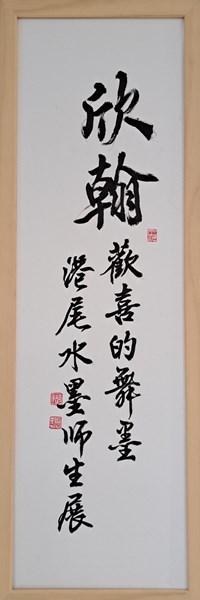 欣翰
歡喜的舞墨
港尾水墨师生展